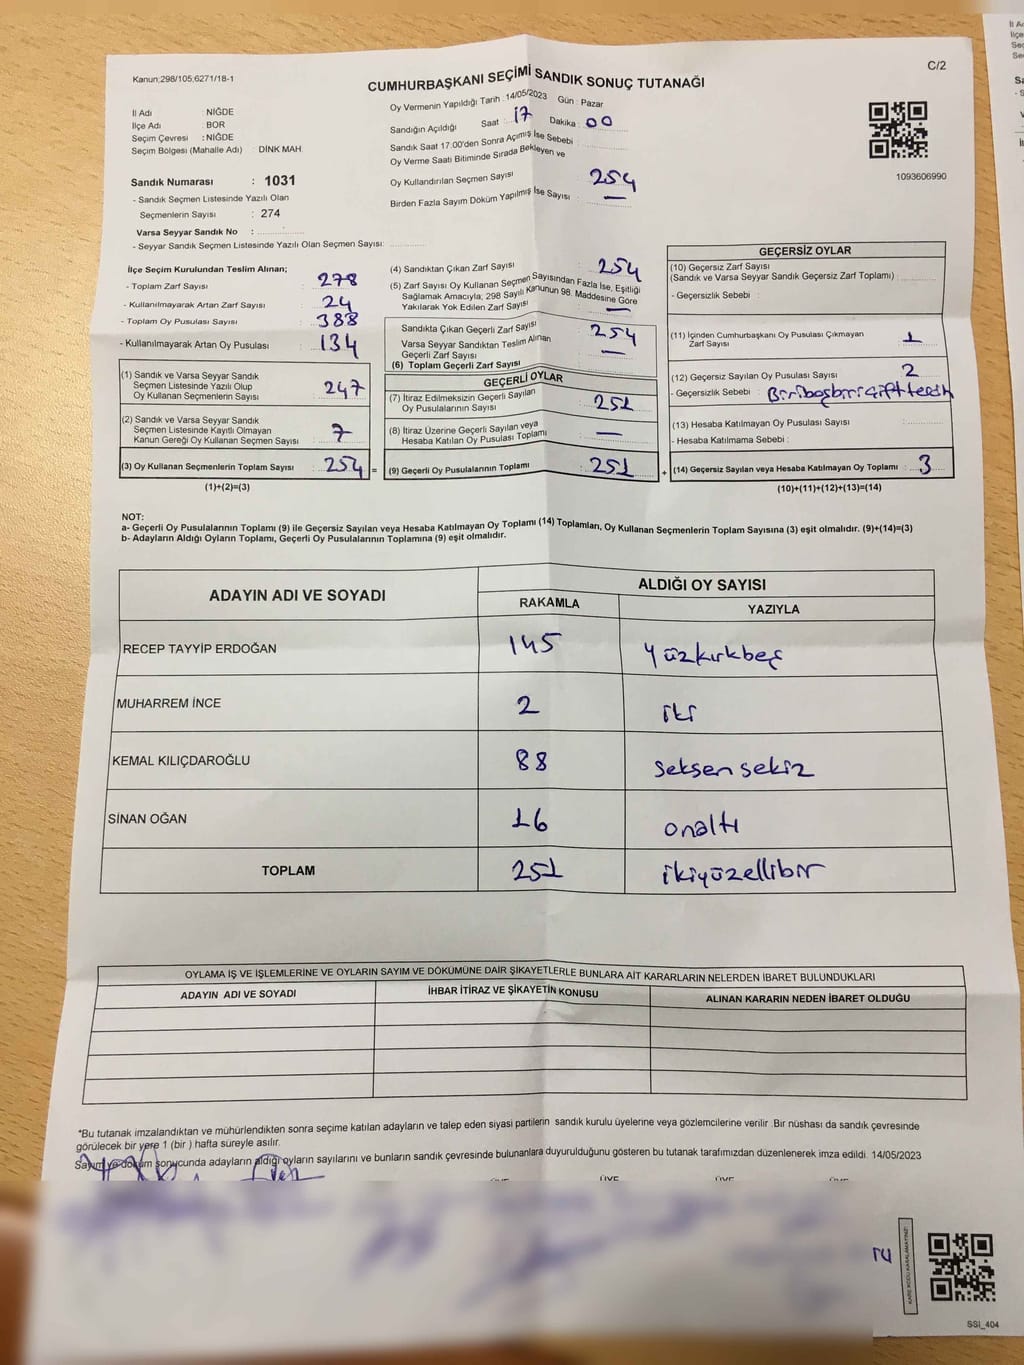 Kanun;298/105;6271/18-1
C/2
CUMHURBAŞKANI SEÇİMİ SANDIK SONUÇ TUTANAĞI
İl Adı : NİĞDE
İlçe Adı : BOR
Seçim Çevresi : NİĞDE
Seçim Bölgesi (Mahalle Adı) : DİNK MAH.
Sandık Numarası : 1031
- Sandık Seçmen Listesinde Yazılı Olan
Seçmenlerin Sayısı : 274
Varsa Seyyar Sandık No :
- Seyyar Sandık Seçmen Listesinde Yazılı Olan Seçmen Sayısı:
Oy Vermenin Yapıldığı Tarih : 14/05/2023 Gün : Pazar
Sandığın Açıldığı Saat : 17 Dakika : 00
Sandık Saat 17.00'den Sonra Açımış İse Sebebi :
Oy Verme Saati Bitiminde Sırada Bekleyen ve
Oy Kullandırılan Seçmen Sayısı : 254
Birden Fazla Sayım Döküm Yapılmış İse Sayısı : —
1093606990
İlçe Seçim Kurulundan Teslim Alınan;
- Toplam Zarf Sayısı : 278
- Kullanılmayarak Artan Zarf Sayısı : 24
- Toplam Oy Pusulası Sayısı : 388
- Kullanılmayarak Artan Oy Pusulası : 134
(1) Sandık ve Varsa Seyyar Sandık
Seçmen Listesinde Yazılı Olup
Oy Kullanan Seçmenlerin Sayısı : 247
(2) Sandık ve Varsa Seyyar Sandık
Seçmen Listesinde Kayıtlı Olmayan
Kanun Gereği Oy Kullanan Seçmen Sayısı : 7
(3) Oy Kullanan Seçmenlerin Toplam Sayısı : 254 =
(1)+(2)=(3)
(4) Sandıktan Çıkan Zarf Sayısı : 254
(5) Zarf Sayısı Oy Kullanan Seçmen Sayısından Fazla İse, Eşitliği
Sağlamak Amacıyla; 298 Sayılı Kanunun 98. Maddesine Göre
Yakılarak Yok Edilen Zarf Sayısı : —
Sandıkta Çıkan Geçerli Zarf Sayısı : 254
Varsa Seyyar Sandıktan Teslim Alınan
Geçerli Zarf Sayısı : —
(6) Toplam Geçerli Zarf Sayısı
GEÇERLİ OYLAR
(7) İtiraz Edilmeksizin Geçerli Sayılan
Oy Pusulalarının Sayısı : 251
(8) İtiraz Üzerine Geçerli Sayılan veya
Hesaba Katılan Oy Pusulası Toplamı : —
(9) Geçerli Oy Pusulalarının Toplamı : 251 +
GEÇERSİZ OYLAR
(10) Geçersiz Zarf Sayısı
(Sandık ve Varsa Seyyar Sandık Geçersiz Zarf Toplamı) :
- Geçersizlik Sebebi :
(11) İçinden Cumhurbaşkanı Oy Pusulası Çıkmayan
Zarf Sayısı : 1
(12) Geçersiz Sayılan Oy Pusulası Sayısı : 2
- Geçersizlik Sebebi : Biri boş biri çift
(13) Hesaba Katılmayan Oy Pusulası Sayısı :
- Hesaba Katılmama Sebebi :
(14) Geçersiz Sayılan veya Hesaba Katılmayan Oy Toplamı : 3
(10)+(11)+(12)+(13)=(14)
NOT:
a- Geçerli Oy Pusulalarının Toplamı (9) ile Geçersiz Sayılan veya Hesaba Katılmayan Oy Toplamı (14) Toplamları, Oy Kullanan Seçmenlerin Toplam Sayısına (3) eşit olmalıdır. (9)+(14)=(3)
b- Adayların Aldığı Oyların Toplamı, Geçerli Oy Pusulalarının Toplamına (9) eşit olmalıdır.
ADAYIN ADI VE SOYADI
ALDIĞI OY SAYISI
RAKAMLA YAZIYLA
RECEP TAYYİP ERDOĞAN 145 yüzkırkbeş
MUHARREM İNCE 2 iki
KEMAL KILIÇDAROĞLU 88 seksen sekiz
SİNAN OĞAN 16 onaltı
TOPLAM 251 ikiyüzellibir
OYLAMA İŞ VE İŞLEMLERİNE VE OYLARIN SAYIM VE DÖKÜMÜNE DAİR ŞİKAYETLERLE BUNLARA AİT KARARLARIN NELERDEN İBARET BULUNDUKLARI
ADAYIN ADI VE SOYADI İHBAR İTİRAZ VE ŞİKAYETİN KONUSU ALINAN KARARIN NEDEN İBARET OLDUĞU
*Bu tutanak imzalandıktan ve mühürlendikten sonra seçime katılan adayların ve talep eden siyasi partilerin sandık kurulu üyelerine veya gözlemcilerine verilir .Bir nüshası da sandık çevresinde
görülecek bir yere 1 (bir ) hafta süreyle asılır.
Sayım ve döküm sonucunda adayların aldığı oyların sayılarını ve bunların sandık çevresinde bulunanlara duyurulduğunu gösteren bu tutanak tarafımızdan düzenlenerek imza edildi. 14/05/2023
ÜYE ÜYE
KARE KODU KARALAMAYINIZ!
SSI_404